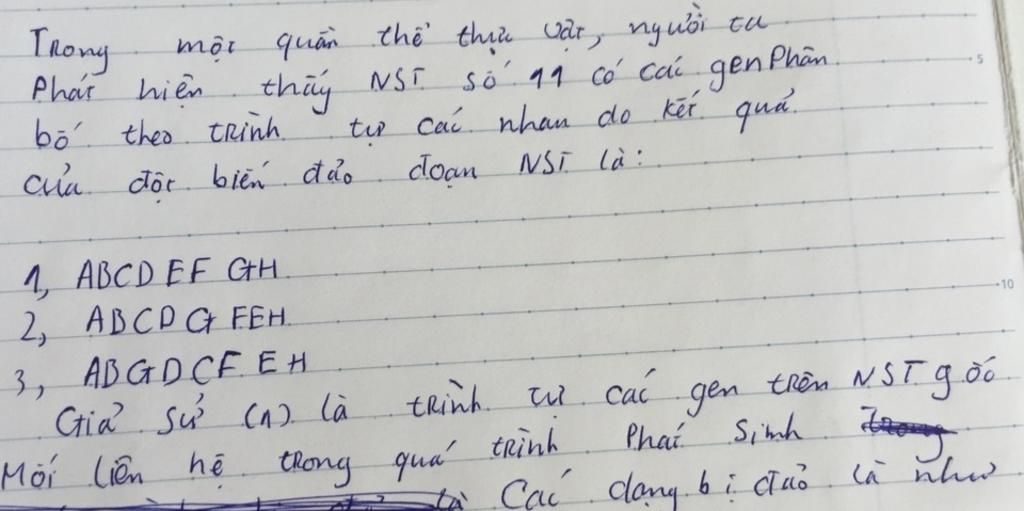 Trong một quần thể thực vật, người ta
Phát hiện thấy NST số 11 có các gen Phân
bố theo trình tự các nhau do kết quả
của đột biến đảo đoạn NST là:
1, ABCDEF GH
2, ABCDG FEH
3, ABGDCF EH
Giả sử (1) là trình tự các gen trên NST gốc
Mối liên hệ trong quá trình Phát Sinh
là Các dạng bị đảo là như